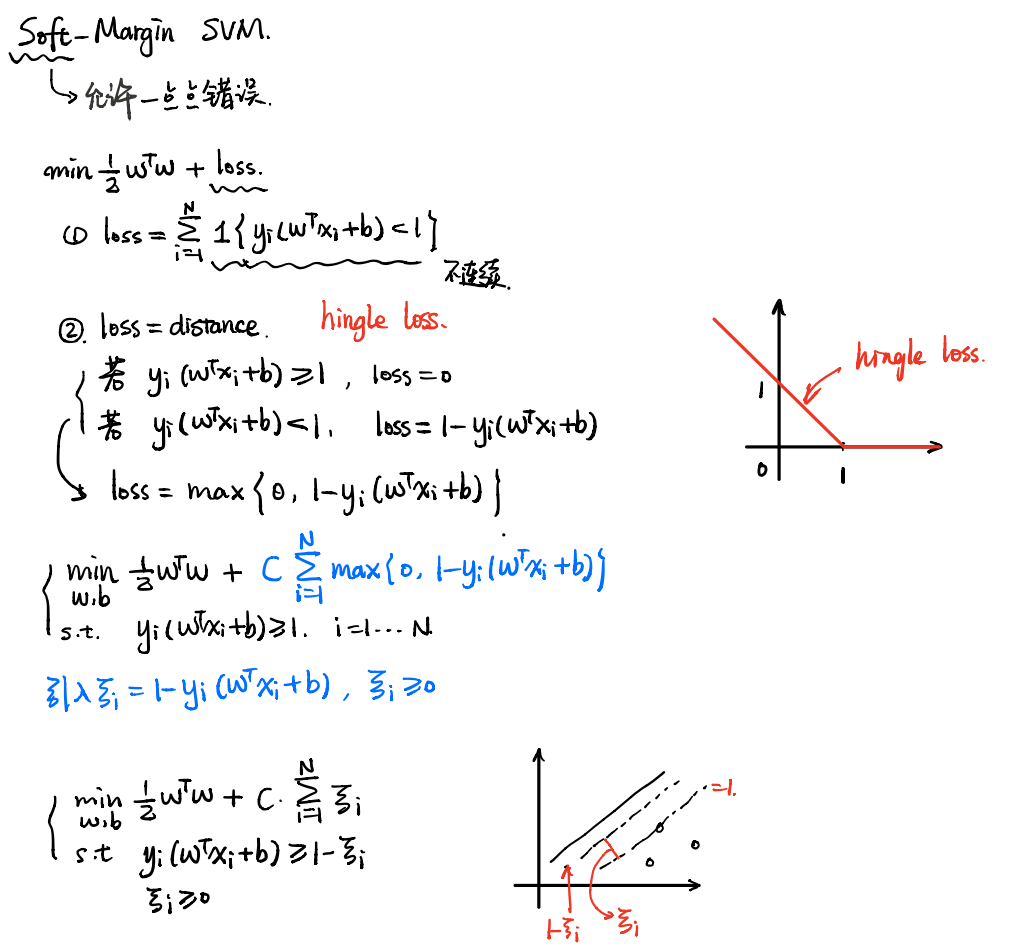 Soft-Margin SVM.
允许一点点错误.
min ½ wᵀw + loss.
① loss = ∑_{i=1}^{N} 1{yᵢ(wᵀxᵢ+b)<1}
不连续.
②. loss = distance. hingle loss.
若 yᵢ(wᵀxᵢ+b)≥1, loss=0
若 yᵢ(wᵀxᵢ+b)<1, loss=1-yᵢ(wᵀxᵢ+b)
loss = max{0, 1-yᵢ(wᵀxᵢ+b)}
hingle loss.
1
0 1
min_{w,b} ½ wᵀw + C ∑_{i=1}^{N} max{0, 1-yᵢ(wᵀxᵢ+b)}
s.t. yᵢ(wᵀxᵢ+b)≥1. i=1...N.
引入 ξᵢ = 1-yᵢ(wᵀxᵢ+b), ξᵢ≥0
min_{w,b} ½ wᵀw + C· ∑_{i=1}^{N} ξᵢ
s.t yᵢ(wᵀxᵢ+b)≥1-ξᵢ
ξᵢ≥0
=1.
1-ξᵢ ξᵢ